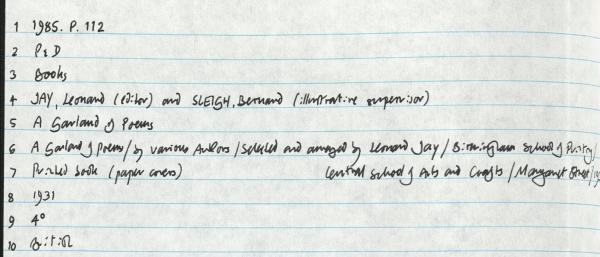 1 1985. P. 112
2 P&D
3 Books
4 JAY, Leonard (editor) and SLEIGH, Bernard (illustrative supervisor)
5 A Garland of Poems
6 A Garland of Poems / by various Authors / Selected and arranged by Leonard Jay / Birmingham School of Printing /
7 Printed book (paper covers) Central School of Arts and Crafts / Margaret Street /
8 1931
9 4°
10 British